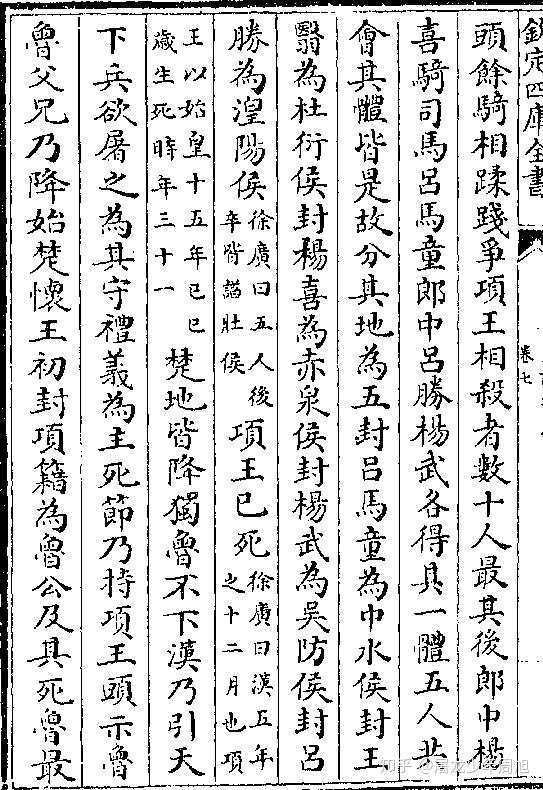 欽定四庫全書
卷七
頭餘騎相蹂踐爭項王相殺者數十人最其後郎中楊
喜騎司馬呂馬童郎中呂勝楊武各得其一體五人共
會其體皆是故分其地為五封呂馬童為中水侯封王
翳為杜衍侯封楊喜為赤泉侯封楊武為吳防侯封呂
勝為湼陽侯徐廣曰五人後卒皆諡壯侯項王已死徐廣曰漢五年之十二月也項
王以始皇十五年己巳歲生死時年三十一楚地皆降獨魯不下漢乃引天
下兵欲屠之為其守禮義為主死節乃持項王頭示魯
魯父兄乃降始楚懷王初封項籍為魯公及其死魯最
知乎